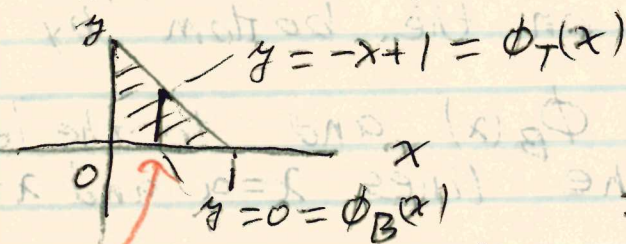 y
y = -x+1 = ϕ_T(x)
0 1 x
y = 0 = ϕ_B(x)